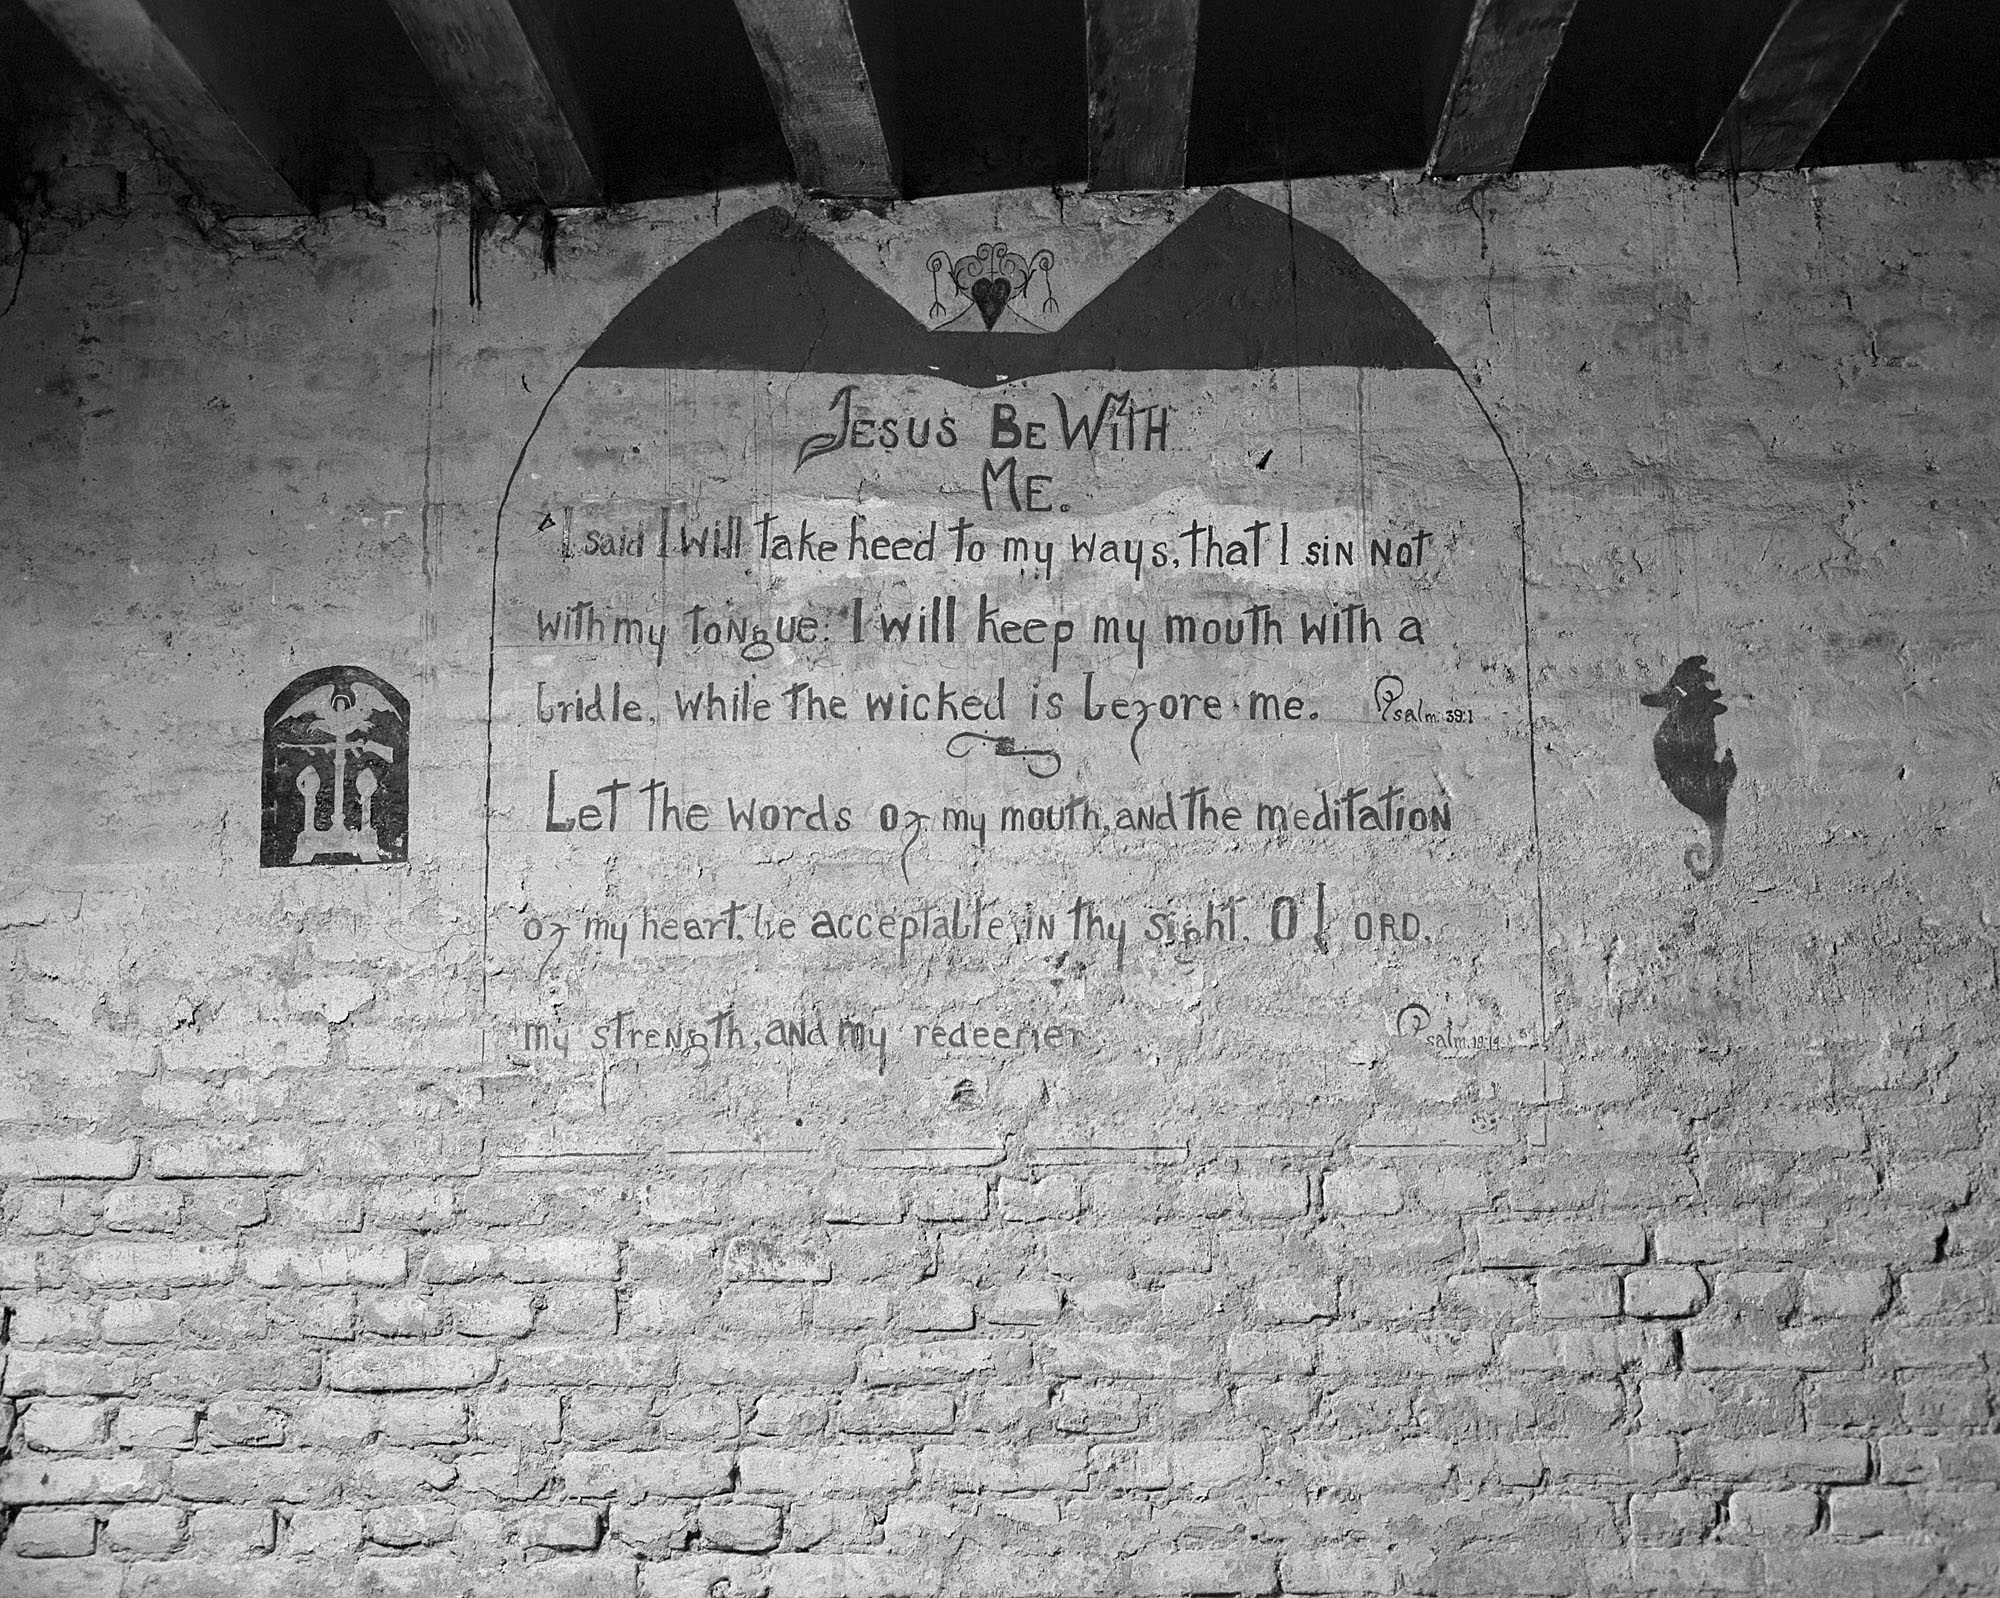 Jesus Be With
Me.
I said I will take heed to my ways, that I sin not
with my tongue: I will keep my mouth with a
bridle, while the wicked is before me. Psalm. 39:1
Let the words of my mouth, and the meditation
of my heart, be acceptable in thy sight, O! LORD,
my strength, and my redeemer Psalm. 19:14